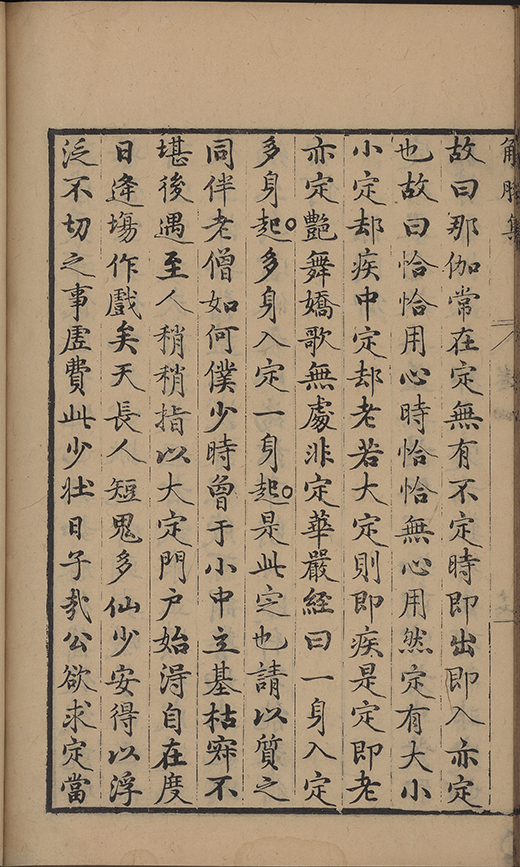 解脫集
故曰那伽常在定無有不定時即出即入亦定
也故曰恰恰用心時恰恰無心用然定有大小
小定却疾中定却老若大定則即疾是定即老
亦定艷舞嬌歌無處非定華嚴經曰一身入定
多身起多身入定一身起是此定也請以質之
同伴老僧如何僕少時曾于小中立基枯寂不
堪後遇至人稍稍指以大定門户始淂自在度
日逄塲作戲矣天長人短鬼多仙少安得以浮
泛不切之事虛費此少壯日子㢤公欲求定當